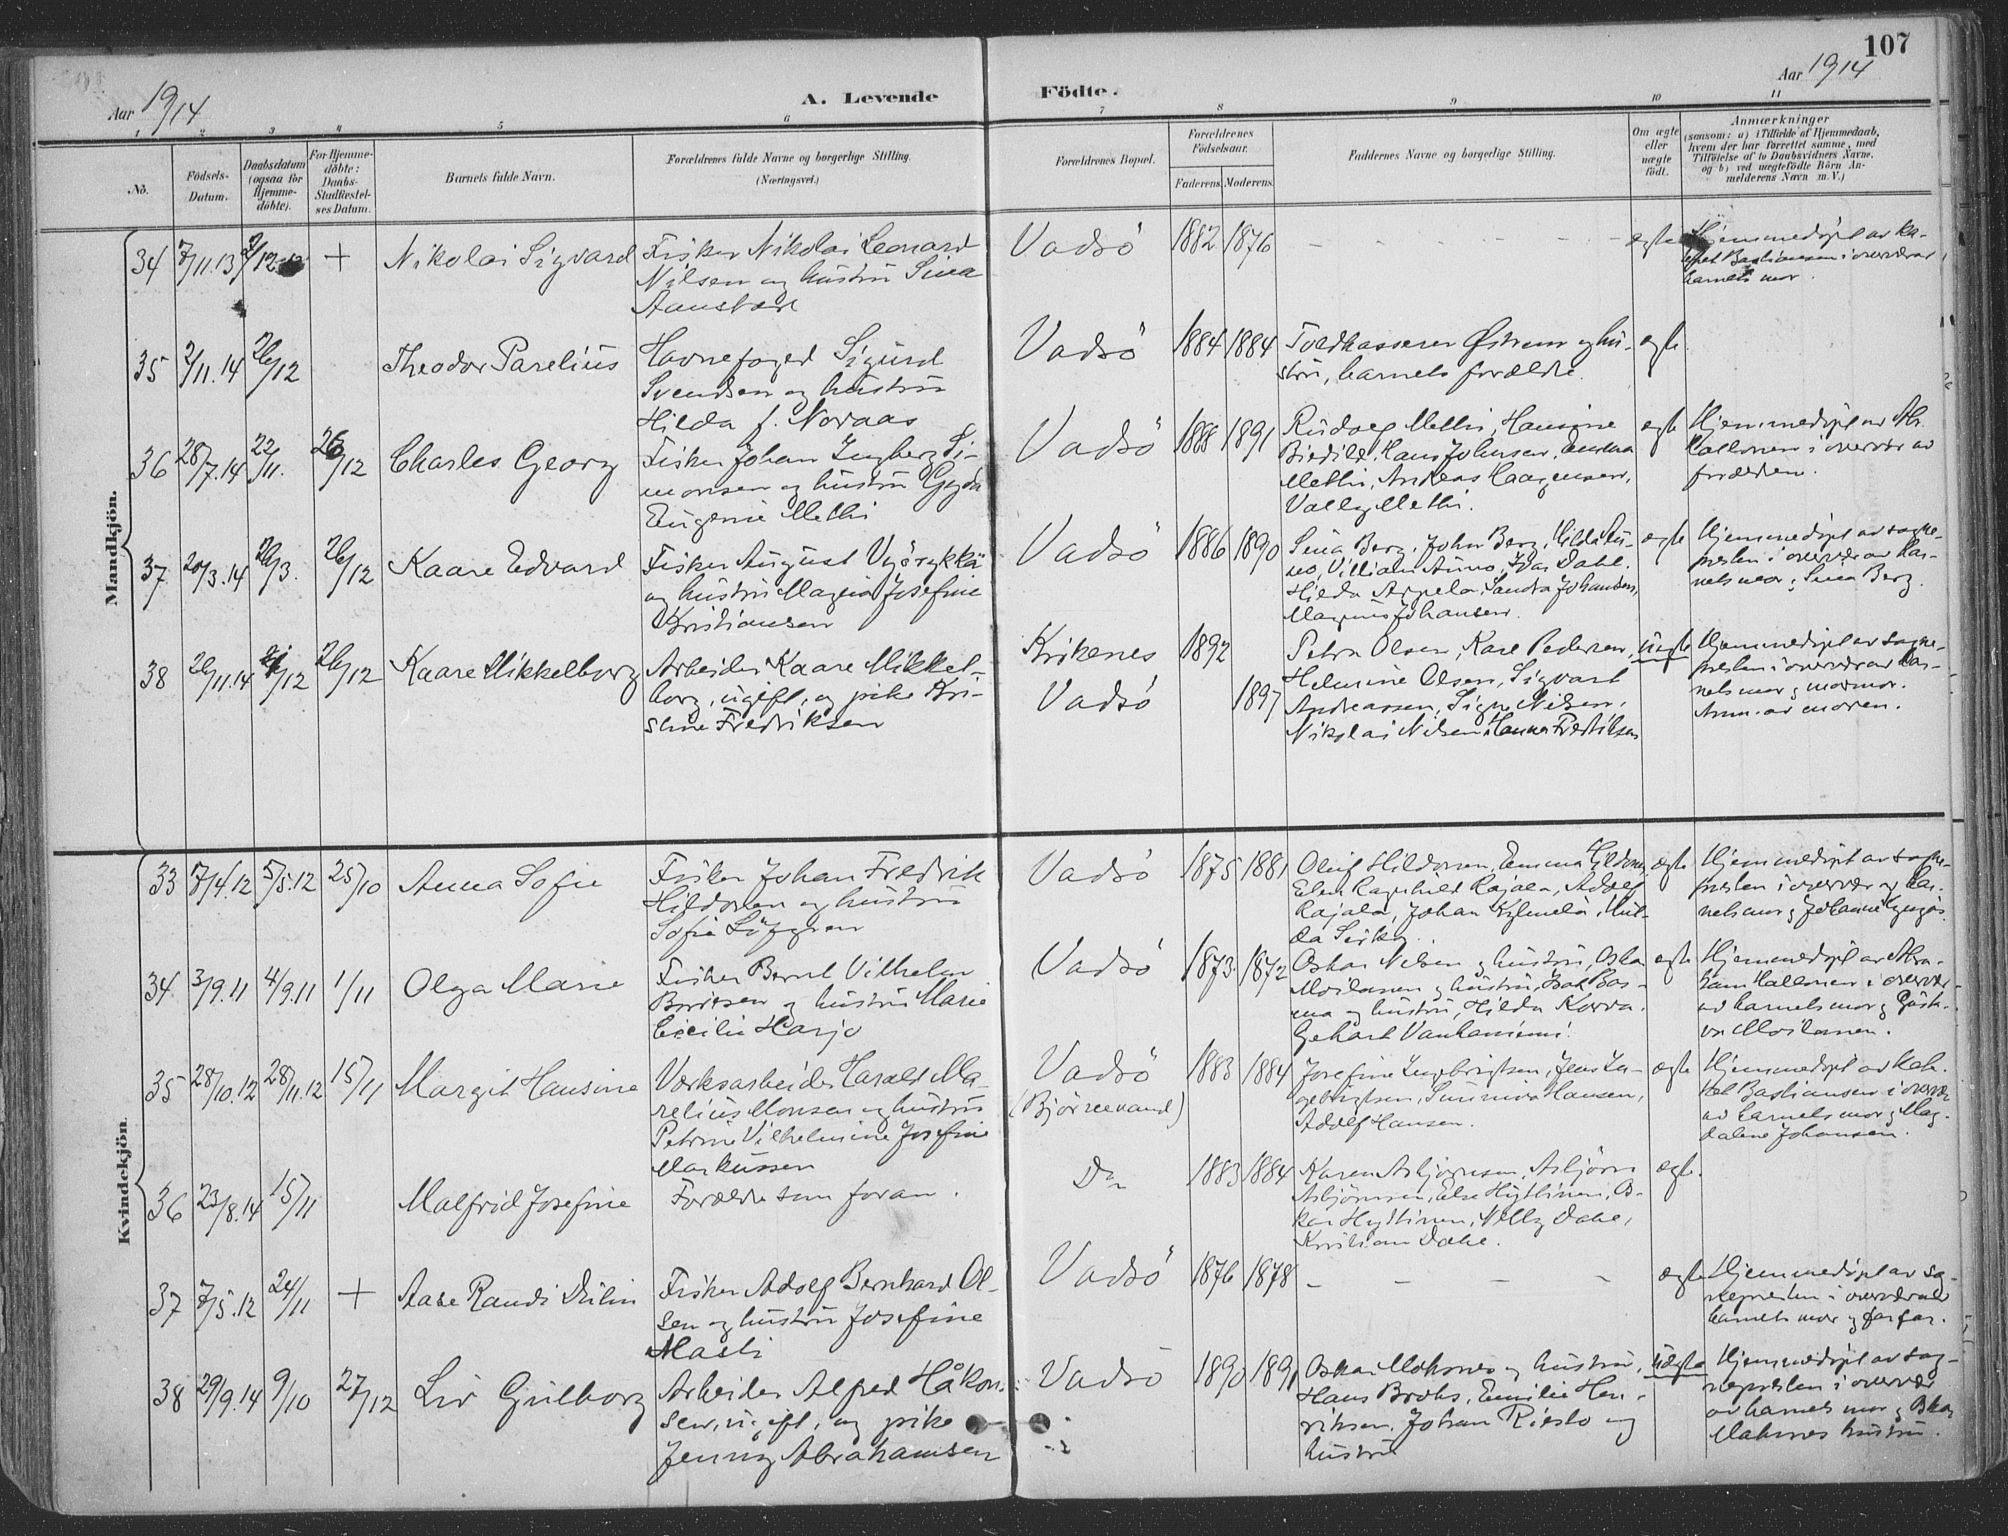 107
Aar 1914
A. Levende Födte.
Aar 1914
1 2 3 4 5 6 7 8 9 10 11
No.
Födsels-Datum.
Daabsdatum (ogsaa for Hjemme-döbte).
For Hjemme-döbte: Daabs-Stadfæstel-ses Datum.
Barnets fulde Navn.
Forældrenes fulde Navne og borgerlige Stilling. (Næringsvei.)
Forældrenes Bopæl.
Forældrenes Födselsaar.
Faderens. Moderens.
Faddernes Navne og borgerlige Stilling.
Om ægte eller uægte födt.
Anmærkninger
(saasom: a) i Tilfælde af Hjemmedaab,
hvem der har forrettet samme, med
Tilföielse af to Daabsvidners Navne,
og b) ved uægtefödte Börn An-
melderens Navn m. V.)
Mandkjön.
34 7/11.13 + Nikolai Sigvard
Fisker Nikolai Leonard
Nilsen og hustru Sina
Vadsö 1882 1876 - - - - - - ægte
Hjemmedöpt av ka-
Bastiansen i overvær av
barnets mor.
35 2/11.14 26/12 Theodor Parelius
Havnefoged Sigurd
Svendsen og hustru
Hilda f. Noraas
Vadsö 1884 1884
Toldkasserer Østrem og hu-
stru, barnets forældre.
ægte
36 28/7.14 22/11. 26/12 Charles Georg
Fisker Johan Ingberg Si-
monsen og hustru Gyda
Eugenie Methi
Vadsö 1888 1891
Rudolf Methi, Hansine
Hans Johnsen,
Methi, Andreas Haagensen,
Valley Methi.
ægte
Hjemmedöpt av Ab.
Hallonen i overvær av
forældren.
37 20/3.14 26/3. 26/12 Kaare Edvard
Fisker August
og hustru Magna Josefine
Kristiansen
Vadsö 1886 1890
Sina Berg, John Berg, Hilda Ju-
Dahl.
Hilda Appela, Sandra Johansen,
Magnus Johansen.
ægte
Hjemmedöpt av sogne-
presten i overvær av bar-
nets mor og Sina Berg.
38 26/11.14 26/12 Kaare Mikkelborg
Arbeider Kaare Mikkel-
borg, ugift, og pike Kri-
stine Fredriksen
Kirkenes 1892
Vadsö 1897
Petra Olsen, Kare Pedersen,
Helmine Olsen, Sigvart
Andreassen, Signe Nilsen,
Nikolai Nilsen, Hanna Fredriksen
uægte
Hjemmedöpt av sogne-
presten i overvær av bar-
nets mor og mormor.
Anm. av moren.
Kvindekjön.
33 7/4.12 5/5.12 25/10 Anna Sofie
Fisker Johan Fredrik
Hildonen og hustru
Sofie Löfgren
Vadsö 1875 1881
Oluf Hildonen, Emma Hildonen,
Elen Ragnhild Rajala, Adolf
Rajala, Johan Kylmelä, Hul-
da
ægte
Hjemmedöpt av sogne-
presten i overvær og bar-
nets mor og Johanne
34 3/9.11 4/9.11 1/11 Olga Marie
Fisker Bernt Vilhelm
og hustru Marie
Cicilie Harjo
Vadsö 1873 1872
Oskar Nilsen og hustru, Oskar
Moilanen og hustru, Isak Bos-
og hustru, Hilda Korva.
Gehart
ægte
Hjemmedöpt av Abra-
ham Hallonen i overvær
av barnets mor og Gusta-
va Moilanen.
35 28/10.12 28/11.12 15/11 Margit Hansine
Verksarbeider Harald Ma-
relius Monsen og hustru
Petrine Vilhelmine Josefine
Markussen
Vadsö
(Björnevand)
1883 1884
Josefine Ingebrigtsen, Jens In-
gebrigtsen, Hansen,
Adolf Hansen.
ægte
Hjemmedöpt av kate-
ket Bastiansen i overvær
av barnets mor og Mag-
dalene Johansen.
36 23/8.14 15/11 Malfrid Josefine
Forældre som foran.
Do 1883 1884
Karen Asbjørnsen, Asbjörn
Asbjörnsen, Else Hyttinen, Os-
kar Hyttinen, Nelly Dahl,
Kristian Dahl.
ægte.
37 7/5.12 24/11 + Aase Randi Dulin
Fisker Adolf Bernhard Ol-
sen og hustru Josefine
Masti
Vadsö 1876 1878 - - - - ægte
Hjemmedöpt av so-
gnepresten i overvær av
barnets mor og farfar.
38 29/9.14 9/10 27/12 Liv Gulborg
Arbeider Alfred Håkon-
sen, ugift, og pike
Jenny Abrahamsen
Vadsö 1890 1891
Oskar Moksnes og hustru,
Hans Brochs, Emilie Hen-
riksen, Johan Riesto og
hustru
uægte
Hjemmedöpt av sog-
nepresten i overvær
av barnets mor og Oskar
Moksnes hustru.